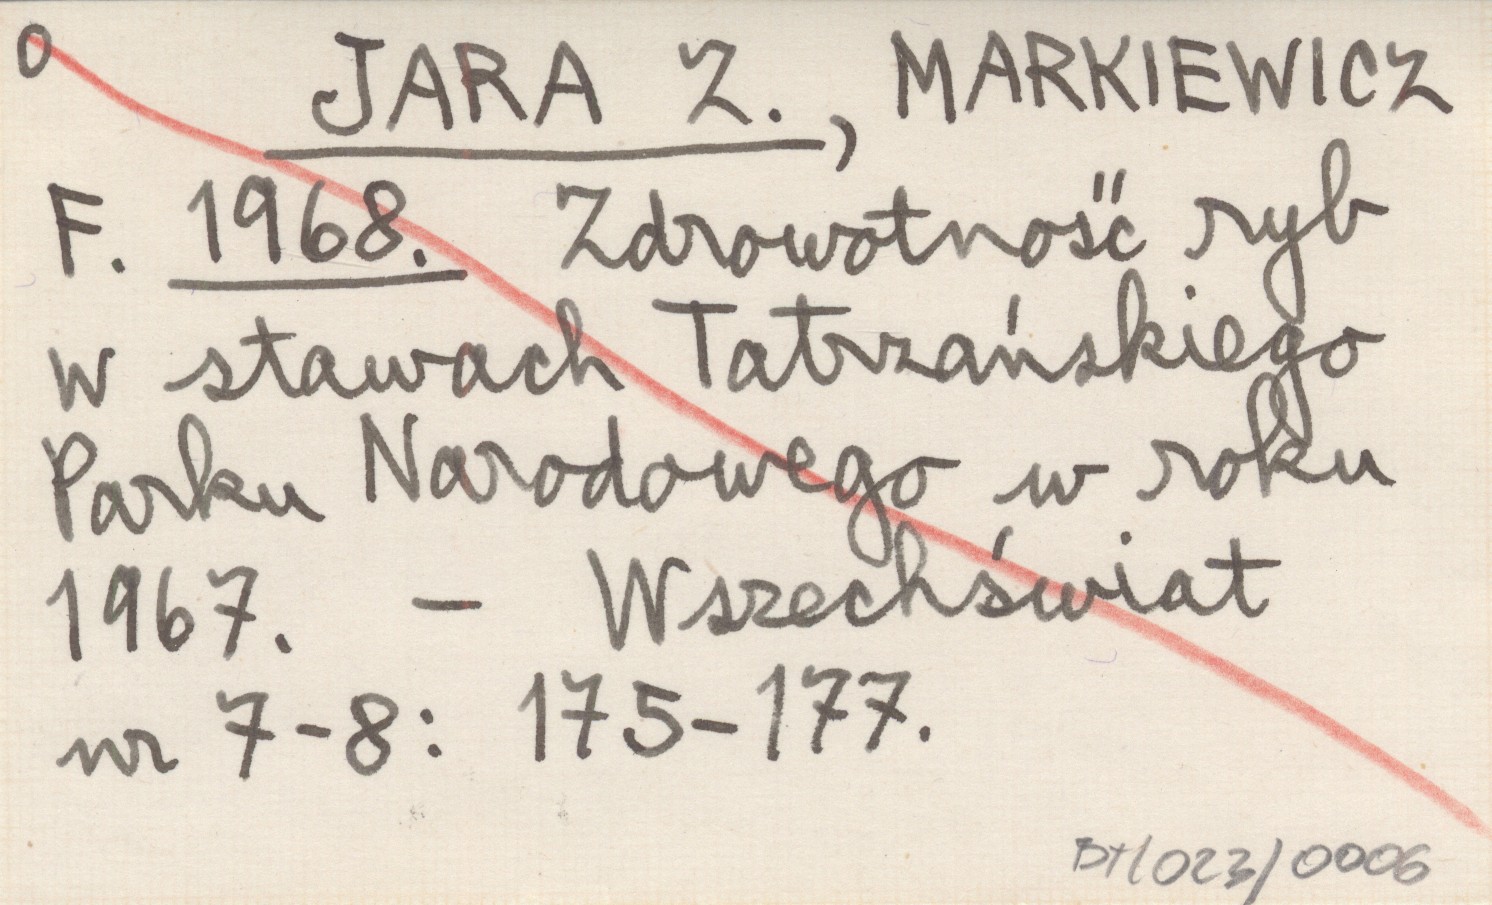 0
JARA Z., MARKIEWICZ
F. 1968. Zdrowotność ryb
w stawach Tatrzańskiego
Parku Narodowego w roku
1967. – Wszechświat
nr 7-8: 175-177.
BT/023/0006